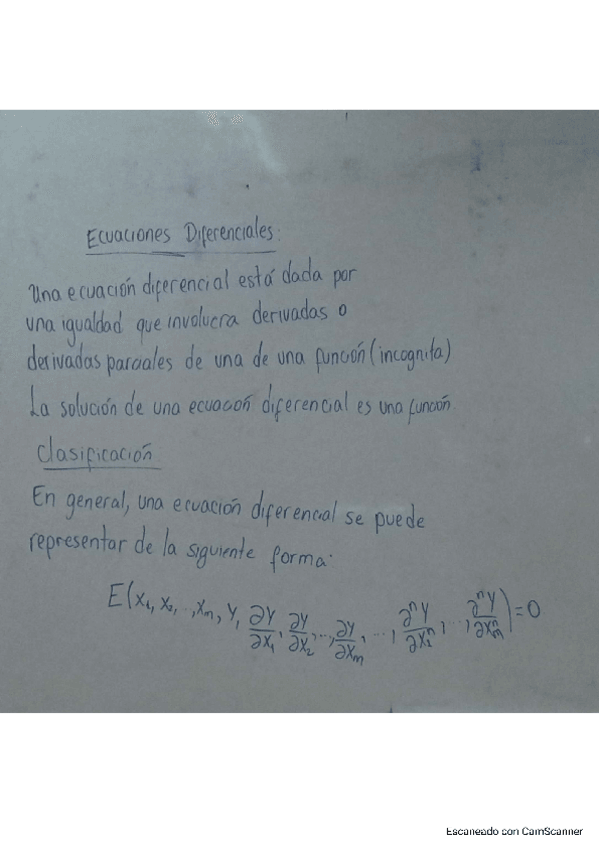 Ecuaciones Diferenciales:
Una ecuación diferencial está dada por
una igualdad que involucra derivadas o
derivadas parciales de una de una función (incognita)
La solución de una ecuacón diferencial es una función.
Clasificación
En general, una ecuación diferencial se puede
representar de la siguiente forma:
E(x₁, x₂, .., xₘ, y, ∂y/∂x₁, ∂y/∂x₂, ..., ∂y/∂xₘ, ..., ∂ⁿy/∂x₁ⁿ, ..., ∂ⁿy/∂xₘⁿ) = 0
Escaneado con CamScanner